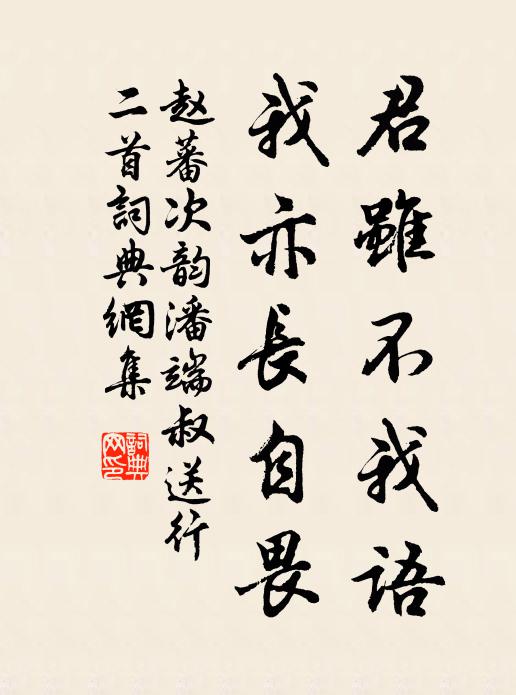 君雖不我語
我亦長自畏
赵蕃次韵潘端叔送行
二首詞典網集
詞典
网印